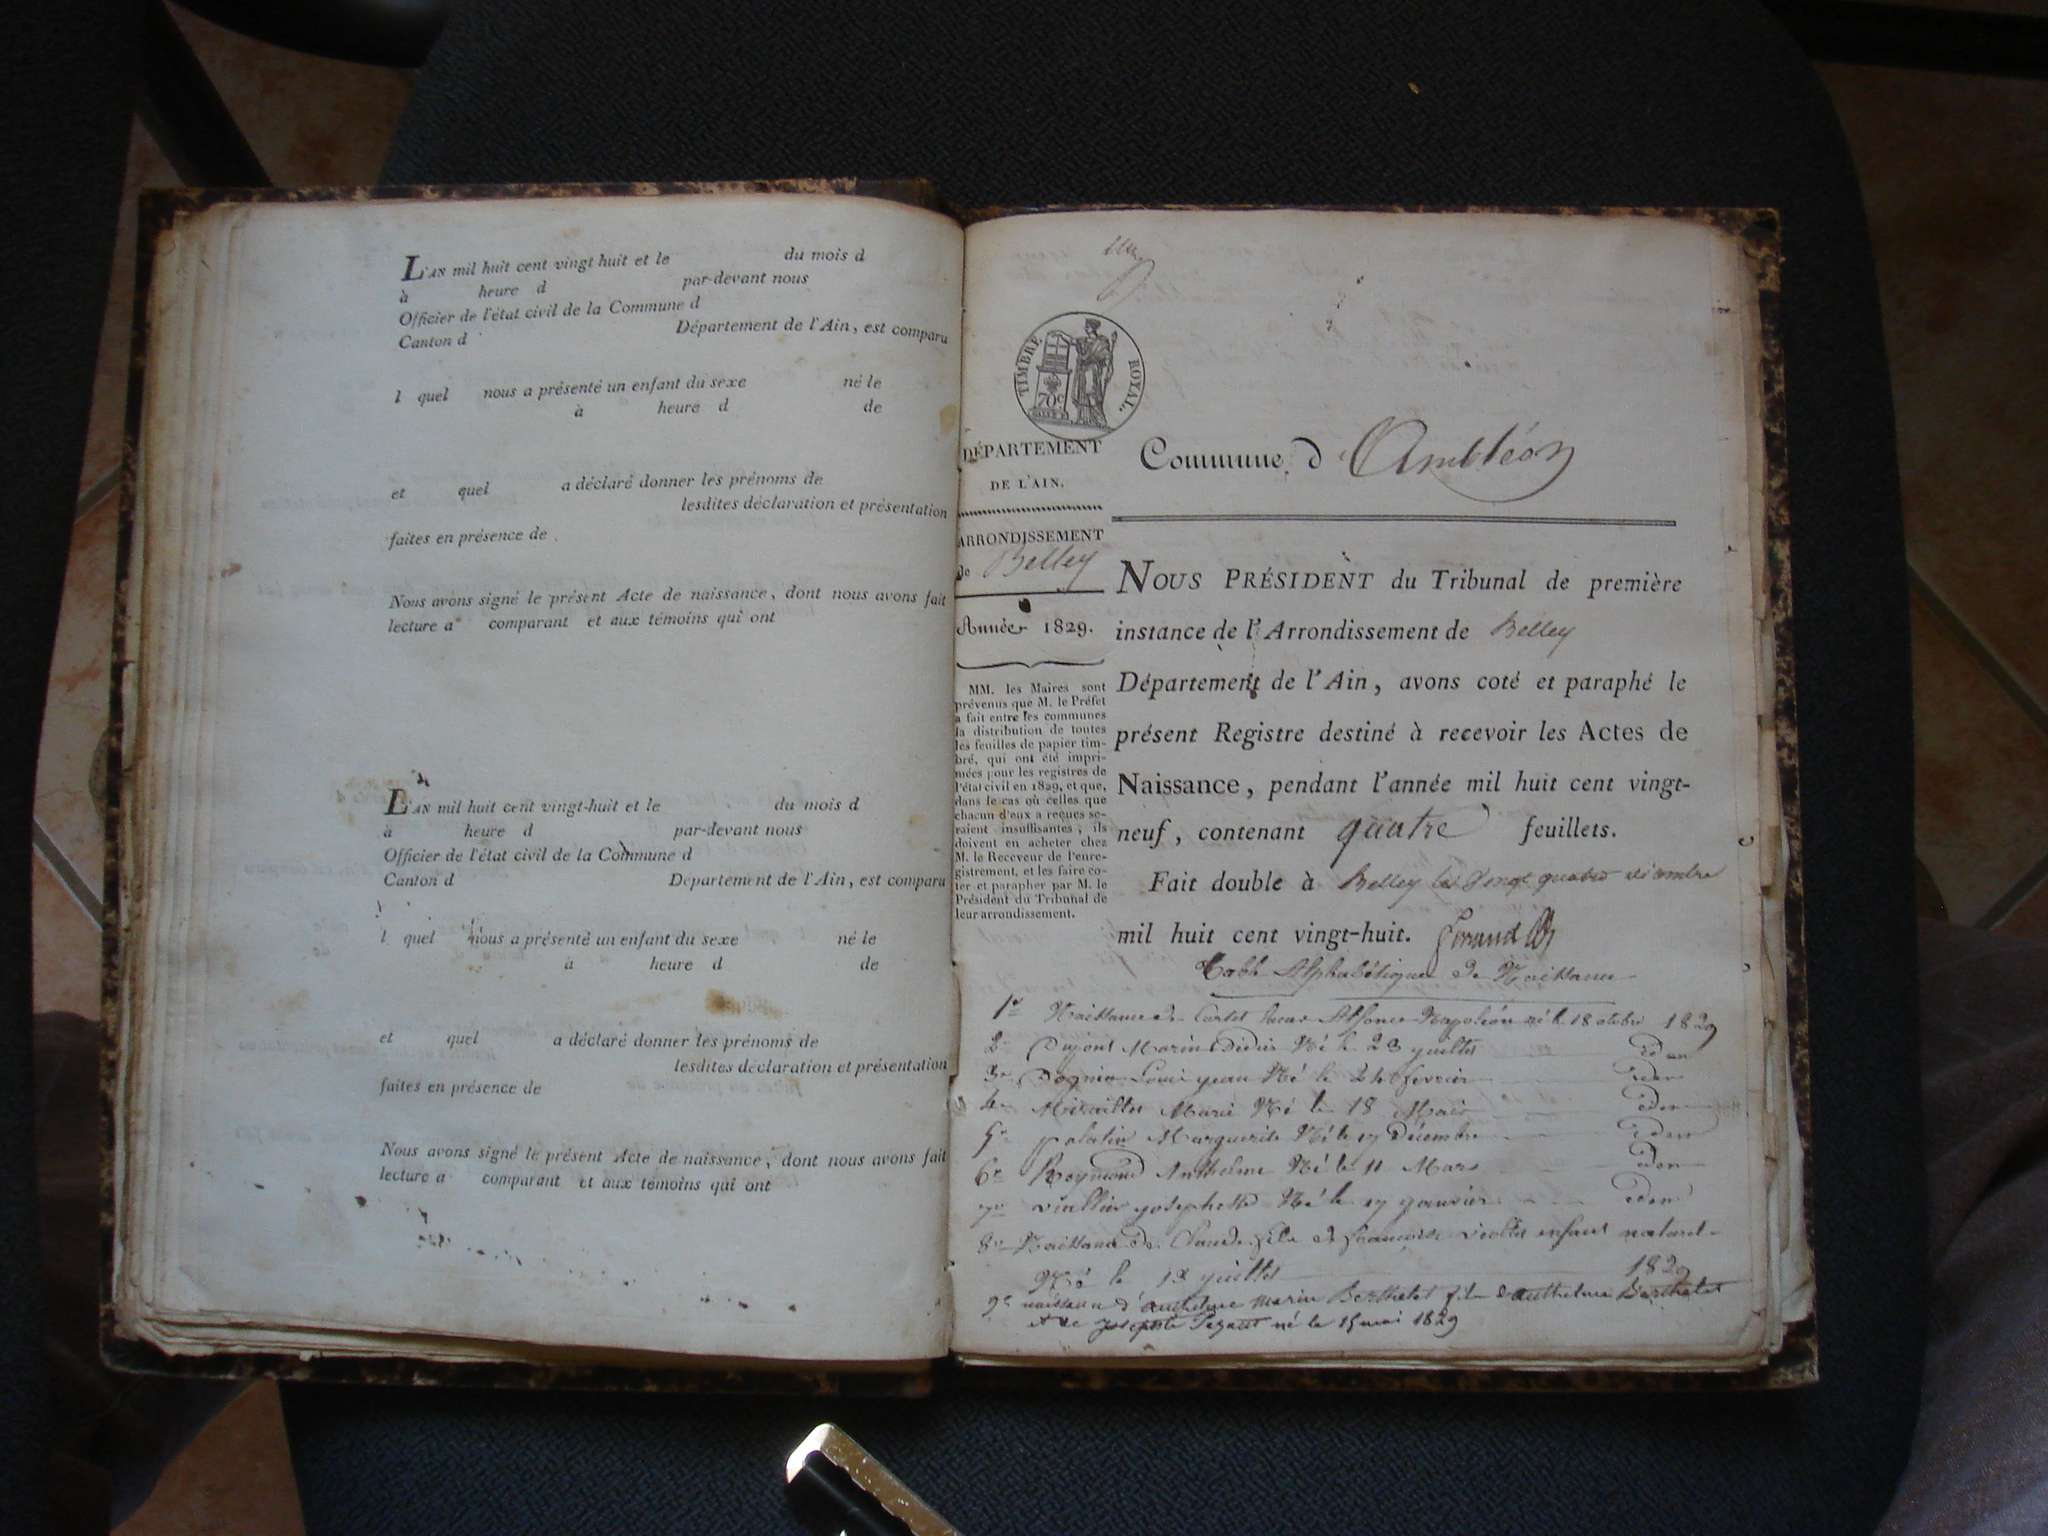 L'AN mil huit cent vingt huit et le du mois d
à heure d par-devant nous
Officier de l'état civil de la Commune d
Canton d Département de l'Ain, est comparu
l quel nous a présenté un enfant du sexe né le
à heure d de
et quel a déclaré donner les prénoms de
lesdites déclaration et présentation
faites en présence de
Nous avons signé le présent Acte de naissance, dont nous avons fait
lecture a comparant et aux témoins qui ont
L'AN mil huit cent vingt-huit et le du mois d
à heure d par-devant nous
Officier de l'état civil de la Commune d
Canton d Département de l'Ain, est comparu
l quel nous a présenté un enfant du sexe né le
à heure d de
et quel a déclaré donner les prénoms de
lesdites déclaration et présentation
faites en présence de
Nous avons signé le présent Acte de naissance, dont nous avons fait
lecture a comparant et aux témoins qui ont
TIMBRE ROYAL.
70c
DÉPARTEMENT
DE L'AIN.
ARRONDISSEMENT
de Belley
Année 1829.
MM. les Maires sont
prévenus que M. le Préfet
a fait entre les communes
la distribution de toutes
les feuilles de papier tim-
bré, qui ont été impri-
mées pour les registres de
l'état civil en 1829, et que,
dans le cas où celles que
chacun d'eux a reçues se-
raient insuffisantes, ils
doivent en acheter chez
M. le Receveur de l'enre-
gistrement, et les faire co-
ter et parapher par M. le
Président du Tribunal de
leur arrondissement.
Commune d'Ambléon
NOUS PRÉSIDENT du Tribunal de première
instance de l'Arrondissement de Belley
Département de l'Ain, avons coté et paraphé le
présent Registre destiné à recevoir les Actes de
Naissance, pendant l'année mil huit cent vingt-
neuf, contenant quatre feuillets.
Fait double à Belley le vingt quatre décembre
mil huit cent vingt-huit. Giraud
Table Alphabétique de Naissance
1er Naissance de Alfonce Napoléon né le 18 octobre 1829
2e Marin Né le 23 juillet idem
3e Loui jean Né le 24 fevrier idem
4e Marie Né le 18 idem
5e palatin Marguerite Né le 17 Décembre idem
6e Reymond Anthelme Né le 11 Mars idem
7e josephette Né le 17 janvier idem
8e Naissance de Claude fils de francoise enfant naturel
Né le 13 juillet 1829
9e naissance d'anthelme marin Berthelet fils d'anthelme Berthelet
et de josephte né le 15 mai 1829